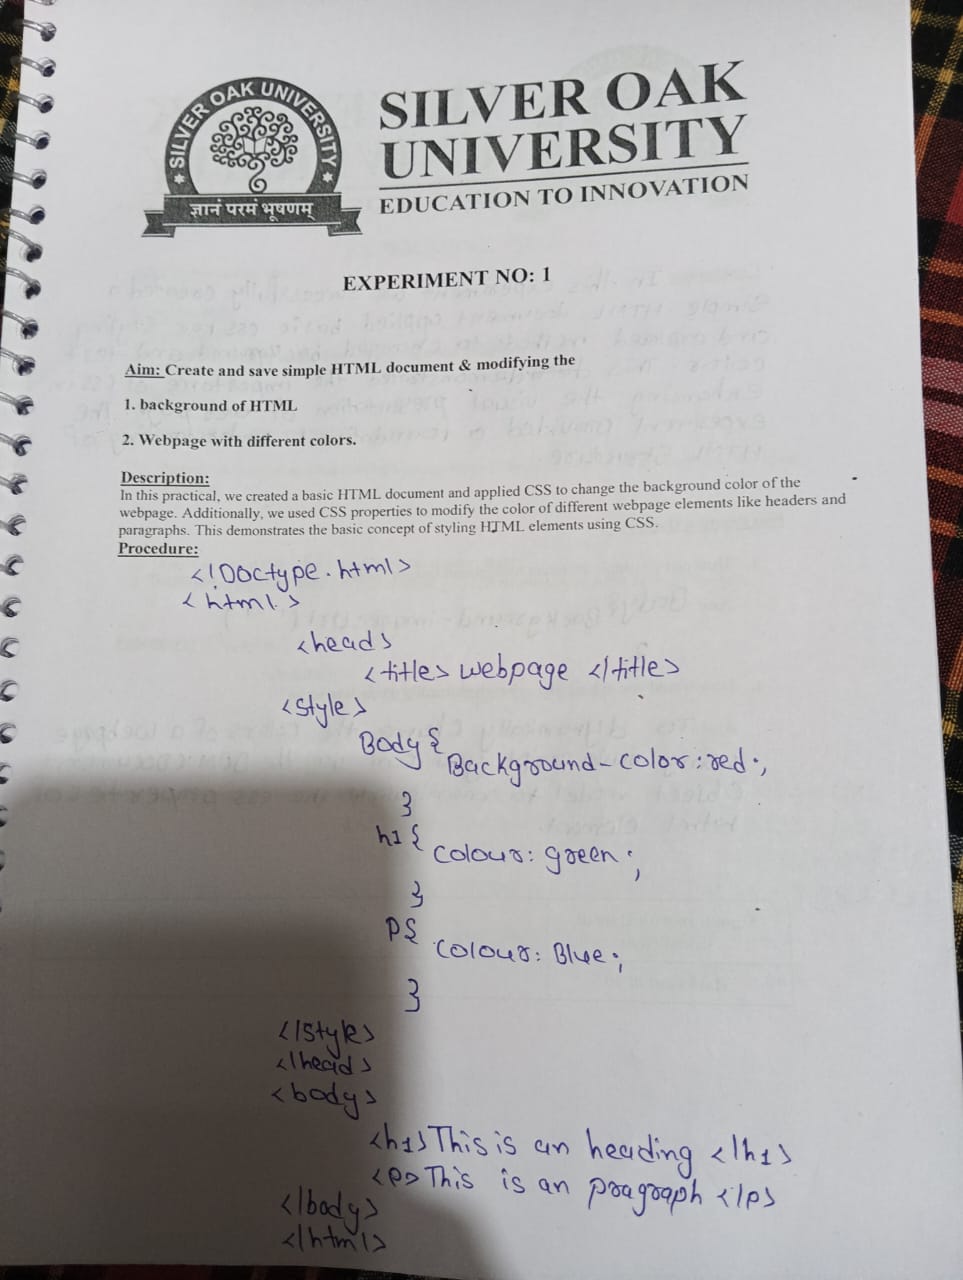 SILVER OAK UNIVERSITY
ज्ञानं परमं भूषणम्
SILVER OAK
UNIVERSITY
EDUCATION TO INNOVATION
EXPERIMENT NO: 1
Aim: Create and save simple HTML document & modifying the
1. background of HTML
2. Webpage with different colors.
Description:
In this practical, we created a basic HTML document and applied CSS to change the background color of the
webpage. Additionally, we used CSS properties to modify the color of different webpage elements like headers and
paragraphs. This demonstrates the basic concept of styling HTML elements using CSS.
Procedure:
<!Doctype.html>
<html>
<head>
<title> webpage </title>
<style>
Body {
Background-color: red;
}
h1 {
colour: green;
}
P{
colour: Blue;
}
</style>
</head>
<body>
<h1> This is an heading </h1>
<p> This is an pragraph </p>
</body>
</html>